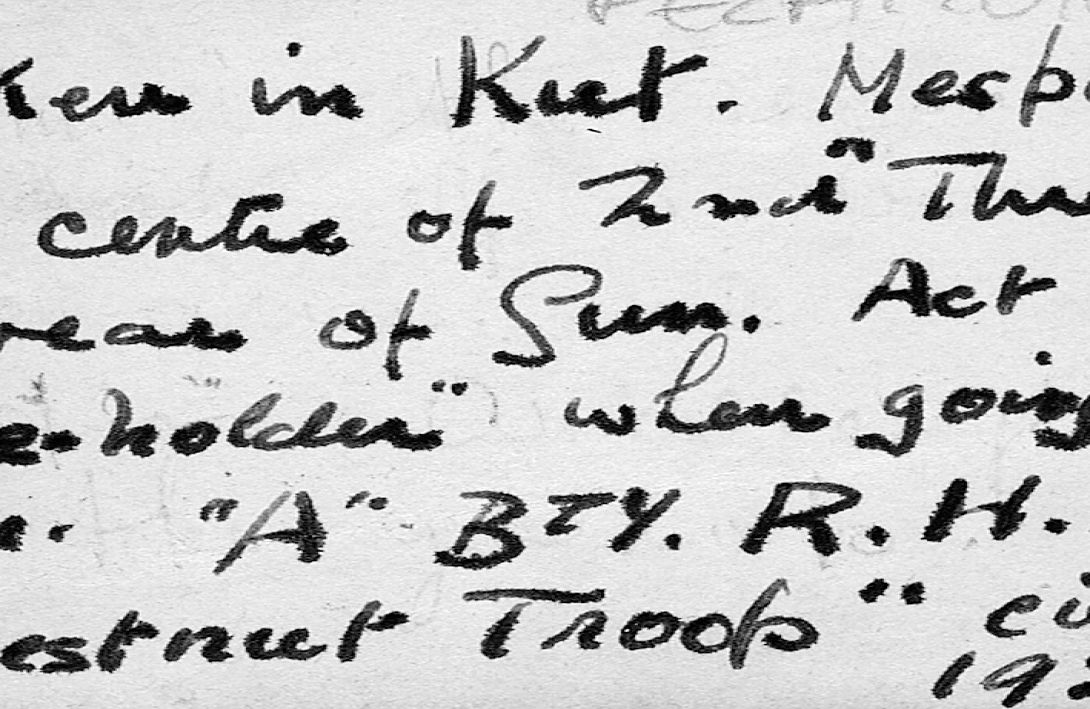 ken in Kut. Mesp
centre of 2nd" Thr
rear of Gun. Act
e-holder" when going
"A" BTY. R. H.
estnut Troop" ci
19